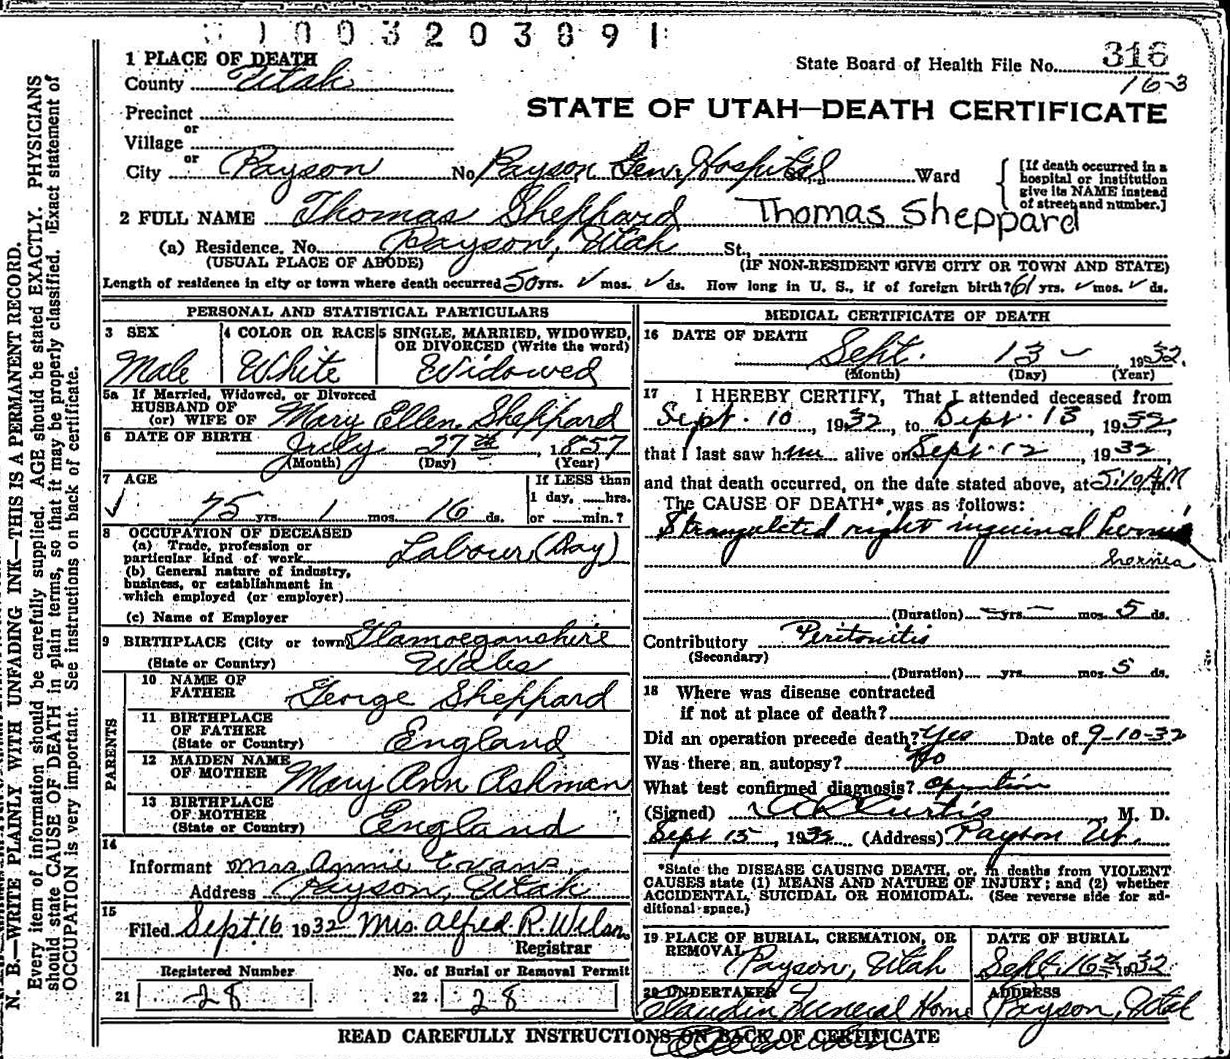 1003203891
1 PLACE OF DEATH
State Board of Health File No. 316
County Utah
16-3
STATE OF UTAH—DEATH CERTIFICATE
Precinct
or
Village
or
City Payson No. Payson Gen. Hospital Ward
[If death occurred in a
hospital or institution
give its NAME instead
of street and number.]
2 FULL NAME Thomas Sheppard Thomas Sheppard
(a) Residence. No. Payson, Utah St.,
(USUAL PLACE OF ABODE) (IF NON-RESIDENT GIVE CITY OR TOWN AND STATE)
Length of residence in city or town where death occurred 50 yrs. ✓ mos. ✓ ds. How long in U. S., if of foreign birth? 61 yrs. ✓ mos. ✓ ds.
PERSONAL AND STATISTICAL PARTICULARS
3 SEX
Male
4 COLOR OR RACE
White
5 SINGLE, MARRIED, WIDOWED,
OR DIVORCED (Write the word)
Widowed
5a If Married, Widowed, or Divorced
HUSBAND OF
(or) WIFE OF Mary Ellen Sheppard
6 DATE OF BIRTH July 27th, 1857
(Month) (Day) (Year)
7 AGE
✓ 75 yrs. 1 mos. 16 ds.
If LESS than
1 day, ......hrs.
or ......min.?
8 OCCUPATION OF DECEASED
(a) Trade, profession or
particular kind of work Labour (Day)
(b) General nature of industry,
business, or establishment in
which employed (or employer)
(c) Name of Employer
9 BIRTHPLACE (City or town) Glamorganshire
(State or Country) Wales
PARENTS
10 NAME OF
FATHER George Sheppard
11 BIRTHPLACE
OF FATHER
(State or Country) England
12 MAIDEN NAME
OF MOTHER Mary Ann Ashman
13 BIRTHPLACE
OF MOTHER
(State or Country) England
14
Informant Mrs. Annie Evans
Address Payson, Utah
15
Filed Sept 16 1932 Mrs. Alfred R. Wilson
Registrar
Registered Number
21 28
No. of Burial or Removal Permit
22 28
MEDICAL CERTIFICATE OF DEATH
16 DATE OF DEATH
Sept. 13 – 1932.
(Month) (Day) (Year)
17 I HEREBY CERTIFY, That I attended deceased from
Sept. 10, 1932, to Sept. 13 1932
that I last saw him alive on Sept. 12, 1932
and that death occurred, on the date stated above, at 5:10 A M
The CAUSE OF DEATH* was as follows:
Strangulated right inguinal hernia
hernia
(Duration) – yrs. – mos. 5 ds.
Contributory Peritonitis
(Secondary)
(Duration) yrs. mos. 5 ds.
18 Where was disease contracted
if not at place of death?
Did an operation precede death? Yes Date of 9-10-32
Was there an autopsy? No
What test confirmed diagnosis? Operation
(Signed) Curtis M. D.
Sept 15, 1932 (Address) Payson Ut.
*State the DISEASE CAUSING DEATH, or, in deaths from VIOLENT
CAUSES state (1) MEANS AND NATURE OF INJURY; and (2) whether
ACCIDENTAL, SUICIDAL OR HOMICIDAL. (See reverse side for ad-
ditional space.)
19 PLACE OF BURIAL, CREMATION, OR
REMOVAL Payson, Utah
DATE OF BURIAL
Sept. 16th 1932
20 UNDERTAKER
Claudin Funeral Home
ADDRESS
Payson, Utah
READ CAREFULLY INSTRUCTIONS ON BACK OF CERTIFICATE
N. B.—WRITE PLAINLY WITH UNFADING INK—THIS IS A PERMANENT RECORD.
Every item of information should be carefully supplied. AGE should be stated EXACTLY. PHYSICIANS
should state CAUSE OF DEATH in plain terms, so that it may be properly classified. Exact statement of
OCCUPATION is very important. See instructions on back of certificate.